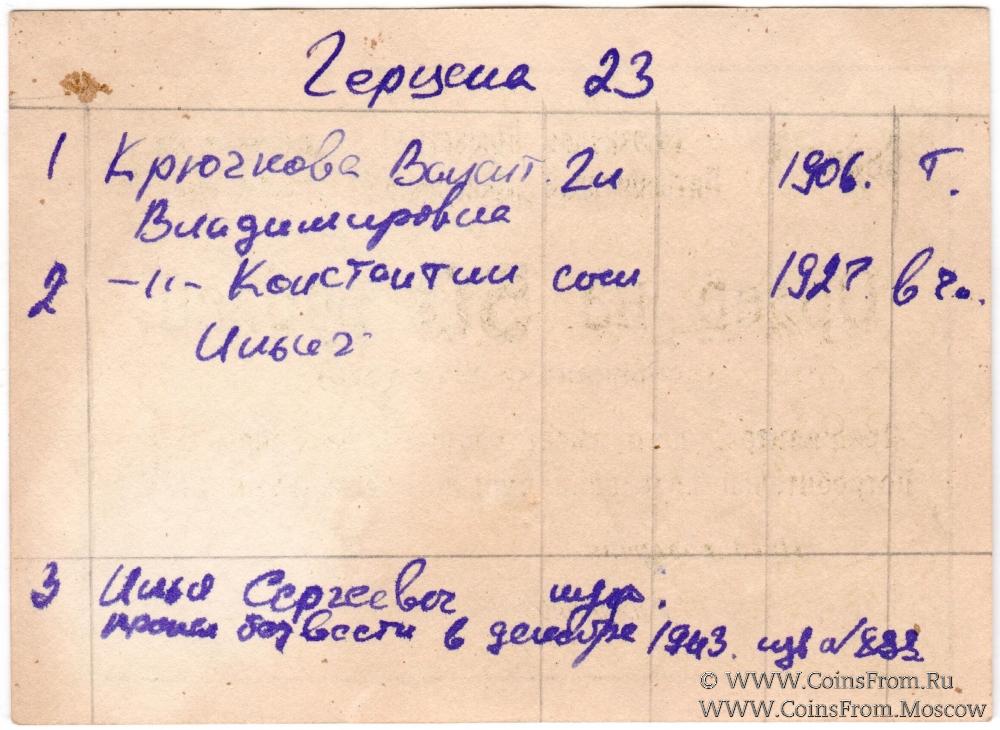 Герцена 23
1 Крючкова Гл 1906. Т.
Владимировна
2 –"– Константин сын 1927. в ч.
Ильич
3 Илья Сергеевич муж.
пропал без вести в декабре 1943. изв
© WWW.CoinsFrom.Ru
WWW.CoinsFrom.Moscow